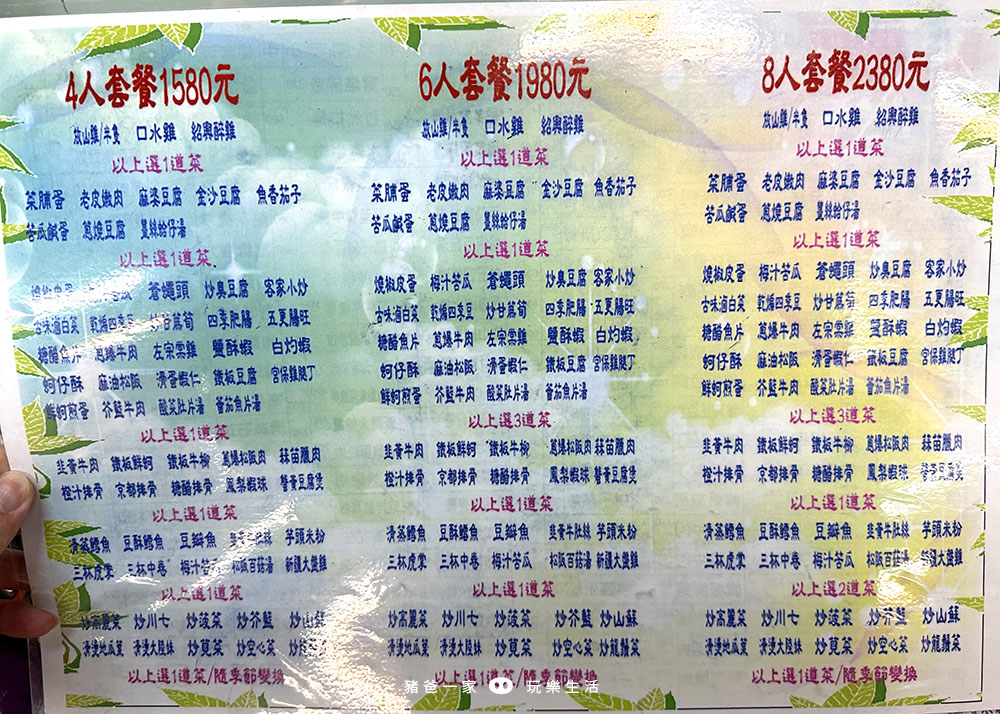 4人套餐1580元
放山雞/半隻 口水雞 紹興醉雞
以上選1道菜
菜脯蛋 老皮嫩肉 麻婆豆腐 金沙豆腐 魚香茄子
苦瓜鹹蛋 蔥燒豆腐 薑絲蛤仔湯
以上選1道菜
燒椒皮蛋 苦瓜 蒼蠅頭 炒臭豆腐 客家小炒
古味滷白菜 乾煸四季豆 炒甘蔗筍 四季肥腸 五更腸旺
糖醋魚片 蔥爆牛肉 左宗棠雞 鹽酥蝦 白灼蝦
蚵仔酥 麻油松阪 滑蛋蝦仁 鐵板豆腐 宮保雞腿丁
鮮蚵煎蛋 芥藍牛肉 酸菜肚片湯 番茄魚片湯
以上選1道菜
韭黃牛肉 鐵板鮮蚵 鐵板牛柳 蔥爆松阪肉 蒜苗臘肉
橙汁排骨 京都排骨 糖醋排骨 鳳梨蝦球 蟹黃豆腐煲
以上選1道菜
清蒸鱈魚 豆酥鱈魚 豆瓣魚 韭黃牛肚絲 芋頭米粉
三杯虎掌 三杯中卷 梅汁苦瓜 松阪百菇湯 新疆大盤雞
以上選1道菜
炒高麗菜 炒川七 炒菠菜 炒芥藍 炒山蘇
清燙地瓜葉 清燙大陸妹 炒莧菜 炒空心菜
以上選1道菜/隨季節變換
6人套餐1980元
放山雞/半隻 口水雞 紹興醉雞
以上選1道菜
菜脯蛋 老皮嫩肉 麻婆豆腐 金沙豆腐 魚香茄子
苦瓜鹹蛋 蔥燒豆腐 薑絲蛤仔湯
以上選1道菜
燒椒皮蛋 梅汁苦瓜 蒼蠅頭 炒臭豆腐 客家小炒
古味滷白菜 乾煸四季豆 炒甘蔗筍 四季肥腸 五更腸旺
糖醋魚片 蔥爆牛肉 左宗棠雞 鹽酥蝦 白灼蝦
蚵仔酥 麻油松阪 滑蛋蝦仁 鐵板豆腐 宮保雞腿丁
鮮蚵煎蛋 芥藍牛肉 酸菜肚片湯 番茄魚片湯
以上選3道菜
韭黃牛肉 鐵板鮮蚵 鐵板牛柳 蔥爆松阪肉 蒜苗臘肉
橙汁排骨 京都排骨 糖醋排骨 鳳梨蝦球 蟹黃豆腐煲
以上選1道菜
清蒸鱈魚 豆酥鱈魚 豆瓣魚 韭黃牛肚絲 芋頭米粉
三杯虎掌 三杯中卷 梅汁苦瓜 松阪百菇湯 新疆大盤雞
以上選1道菜
炒高麗菜 炒川七 炒菠菜 炒芥藍 炒山蘇
清燙地瓜葉 清燙大陸妹 炒莧菜 炒空心菜 炒龍鬚菜
以上選1道菜/隨季節變換
8人套餐2380元
放山雞/半隻 口水雞 紹興醉雞
以上選1道菜
菜脯蛋 老皮嫩肉 麻婆豆腐 金沙豆腐 魚香茄子
苦瓜鹹蛋 蔥燒豆腐 薑絲蛤仔湯
以上選1道菜
燒椒皮蛋 梅汁苦瓜 蒼蠅頭 炒臭豆腐 客家小炒
古味滷白菜 乾煸四季豆 炒甘蔗筍 四季肥腸 五更腸旺
糖醋魚片 蔥爆牛肉 左宗棠雞 鹽酥蝦 白灼蝦
蚵仔酥 麻油松阪 滑蛋蝦仁 鐵板豆腐 宮保雞腿丁
鮮蚵煎蛋 芥藍牛肉 酸菜肚片湯 番茄魚片湯
以上選3道菜
韭黃牛肉 鐵板鮮蚵 鐵板牛柳 蔥爆松阪肉 蒜苗臘肉
橙汁排骨 京都排骨 糖醋排骨 鳳梨蝦球 蟹黃豆腐煲
以上選1道菜
清蒸鱈魚 豆酥鱈魚 豆瓣魚 韭黃牛肚絲 芋頭米粉
三杯虎掌 三杯中卷 梅汁苦瓜 松阪百菇湯 新疆大盤雞
以上選2道菜
炒高麗菜 炒川七 炒菠菜 炒芥藍 炒山蘇
清燙地瓜葉 清燙大陸妹 炒莧菜 炒空心菜 炒龍鬚菜
以上選1道菜/隨季節變換
豬爸一家 玩樂生活